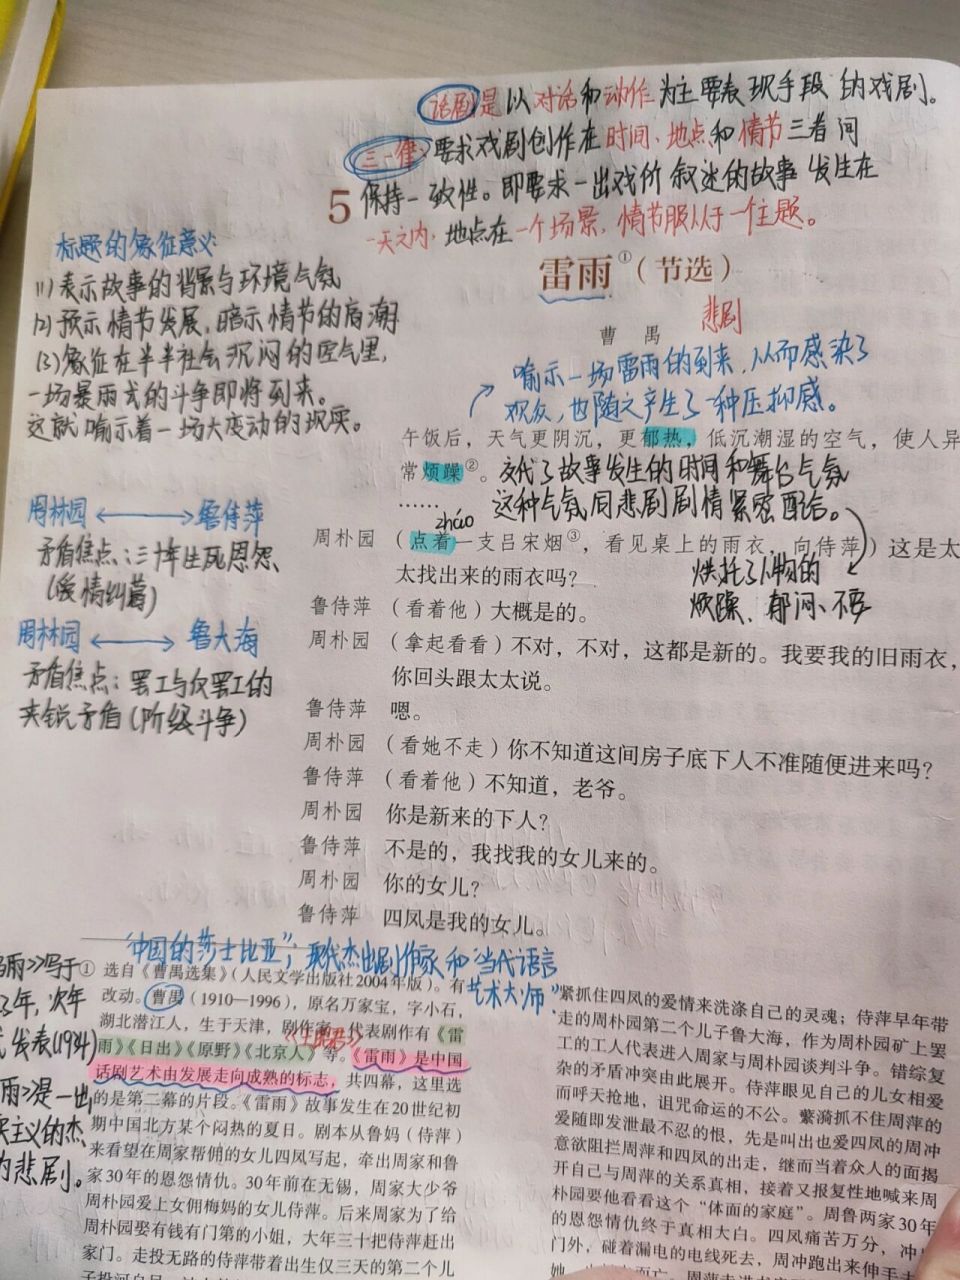 话剧是以对话和动作为主要表现手段的戏剧。
三一律:要求戏剧创作在时间、地点和情节三者间
保持一致性。即要求一出戏所叙述的故事发生在
一天之内,地点在一个场景,情节服从于一个主题。
5
雷雨①(节选)
悲剧
曹禺
标题的象征意义:
(1)表示故事的背景与环境气氛
(2)预示情节发展,暗示情节的高潮
(3)象征在半半社会沉闷的空气里,
一场暴雨式的斗争即将到来。
这就喻示着一场大变动的现实。
喻示一场雷雨的到来,从而感染了
观众,也随之产生了一种压抑感。
午饭后,天气更阴沉,更郁热,低沉潮湿的空气,使人异
常烦躁②。
交代了故事发生的时间和舞台气氛
……
这种气氛同悲剧剧情紧密配合。
烘托了人物的
烦躁、郁闷、不安
周朴园 ⟷ 鲁侍萍
矛盾焦点:三十年生死恩怨、
(爱情纠葛)
周朴园 ⟷ 鲁大海
矛盾焦点:罢工与反罢工的
尖锐矛盾(阶级斗争)
zháo
周朴园 (点着一支吕宋烟③,看见桌上的雨衣,向侍萍)这是太
太找出来的雨衣吗?
鲁侍萍 (看着他)大概是的。
周朴园 (拿起看看)不对,不对,这都是新的。我要我的旧雨衣,
你回头跟太太说。
鲁侍萍 嗯。
周朴园 (看她不走)你不知道这间房子底下人不准随便进来吗?
鲁侍萍 (看着他)不知道,老爷。
周朴园 你是新来的下人?
鲁侍萍 不是的,我找我的女儿来的。
周朴园 你的女儿?
鲁侍萍 四凤是我的女儿。
“中国的莎士比亚”;现代杰出剧作家和“当代语言
艺术大师”.
雨》写于
3年,次年
发表(1934)
雨》是一出
实主义的杰
的悲剧。
① 选自《曹禺选集》(人民文学出版社2004年版)。有
改动。曹禺(1910—1996),原名万家宝,字小石,
湖北潜江人,生于天津,剧作家,代表剧作有《雷
《王昭君》
雨》《日出》《原野》《北京人》等。《雷雨》是中国
话剧艺术由发展走向成熟的标志,共四幕,这里选
的是第二幕的片段。《雷雨》故事发生在20世纪初
期中国北方某个闷热的夏日。剧本从鲁妈(侍萍)
来看望在周家帮佣的女儿四凤写起,牵出周家和鲁
家30年的恩怨情仇。30年前在无锡,周家大少爷
周朴园爱上女佣梅妈的女儿侍萍。后来周家为了给
周朴园娶有钱有门第的小姐,大年三十把侍萍赶出
家门。走投无路的侍萍带着出生仅三天的第二个儿
子投河自尽
紧抓住四凤的爱情来洗涤自己的灵魂;侍萍早年带
走的周朴园第二个儿子鲁大海,作为周朴园矿上罢
工的工人代表进入周家与周朴园谈判斗争。错综复
杂的矛盾冲突由此展开。侍萍眼见自己的儿女相爱
而呼天抢地,诅咒命运的不公。蘩漪抓不住周萍的
爱随即发泄最不忍的恨,先是叫出也爱四凤的周冲
意欲阻拦周萍和四凤的出走,继而当着众人的面揭
开自己与周萍的关系真相,接着又报复性地喊来周
朴园要他看看这个“体面的家庭”。周鲁两家30年
的恩怨情仇终于真相大白。四凤痛苦万分,冲
门外,碰着漏电的电线死去,周冲跑出来伸手去
她